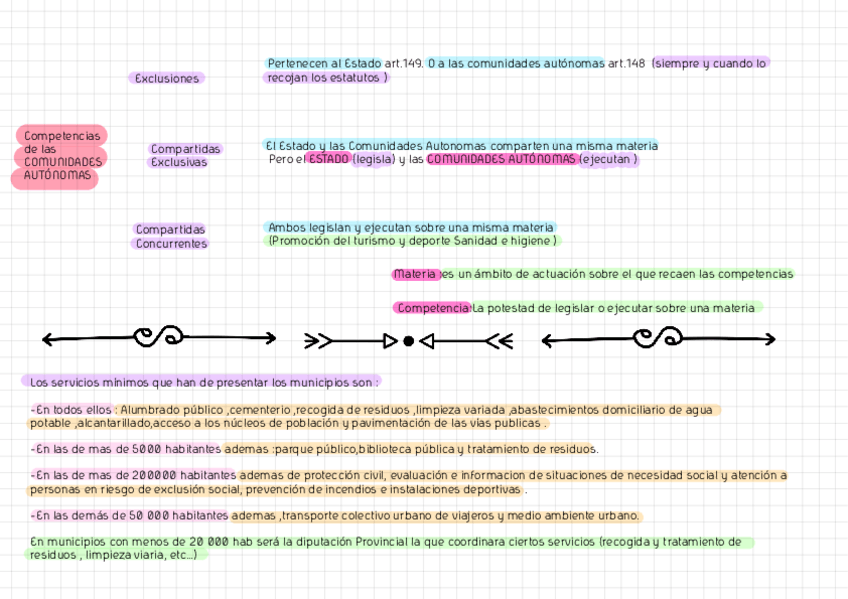 Pertenecen al Estado art.149. O a las comunidades autónomas art.148 (siempre y cuando lo
Exclusiones
recojan los estatutos )
Competencias
de las
COMUNIDADES
AUTÓNOMAS
El Estado y las Comunidades Autonomas comparten una misma materia
Compartidas
Exclusivas
Pero el ESTADO (legisla) y las COMUNIDADES AUTÓNOMAS (ejecutan )
Compartidas
Concurrentes
Ambos legislan y ejecutan sobre una misma materia
(Promoción del turismo y deporte Sanidad e higiene )
Materia es un ámbito de actuación sobre el que recaen las competencias
Competencia La potestad de legislar o ejecutar sobre una materia
Los servicios mínimos que han de presentar los municipios son :
-En todos ellos : Alumbrado público ,cementerio ,recogida de residuos ,limpieza variada ,abastecimientos domiciliario de agua
potable ,alcantarillado,acceso a los núcleos de población y pavimentación de las vías publicas .
-En las de mas de 5000 habitantes ademas :parque público,biblioteca pública y tratamiento de residuos.
-En las de mas de 200000 habitantes ademas de protección civil, evaluación e informacion de situaciones de necesidad social y atención a
personas en riesgo de exclusión social, prevención de incendios e instalaciones deportivas .
-En las demás de 50 000 habitantes ademas ,transporte colectivo urbano de viajeros y medio ambiente urbano.
En municipios con menos de 20 000 hab será la diputación Provincial la que coordinara ciertos servicios (recogida y tratamiento de
residuos , limpieza viaria, etc...)